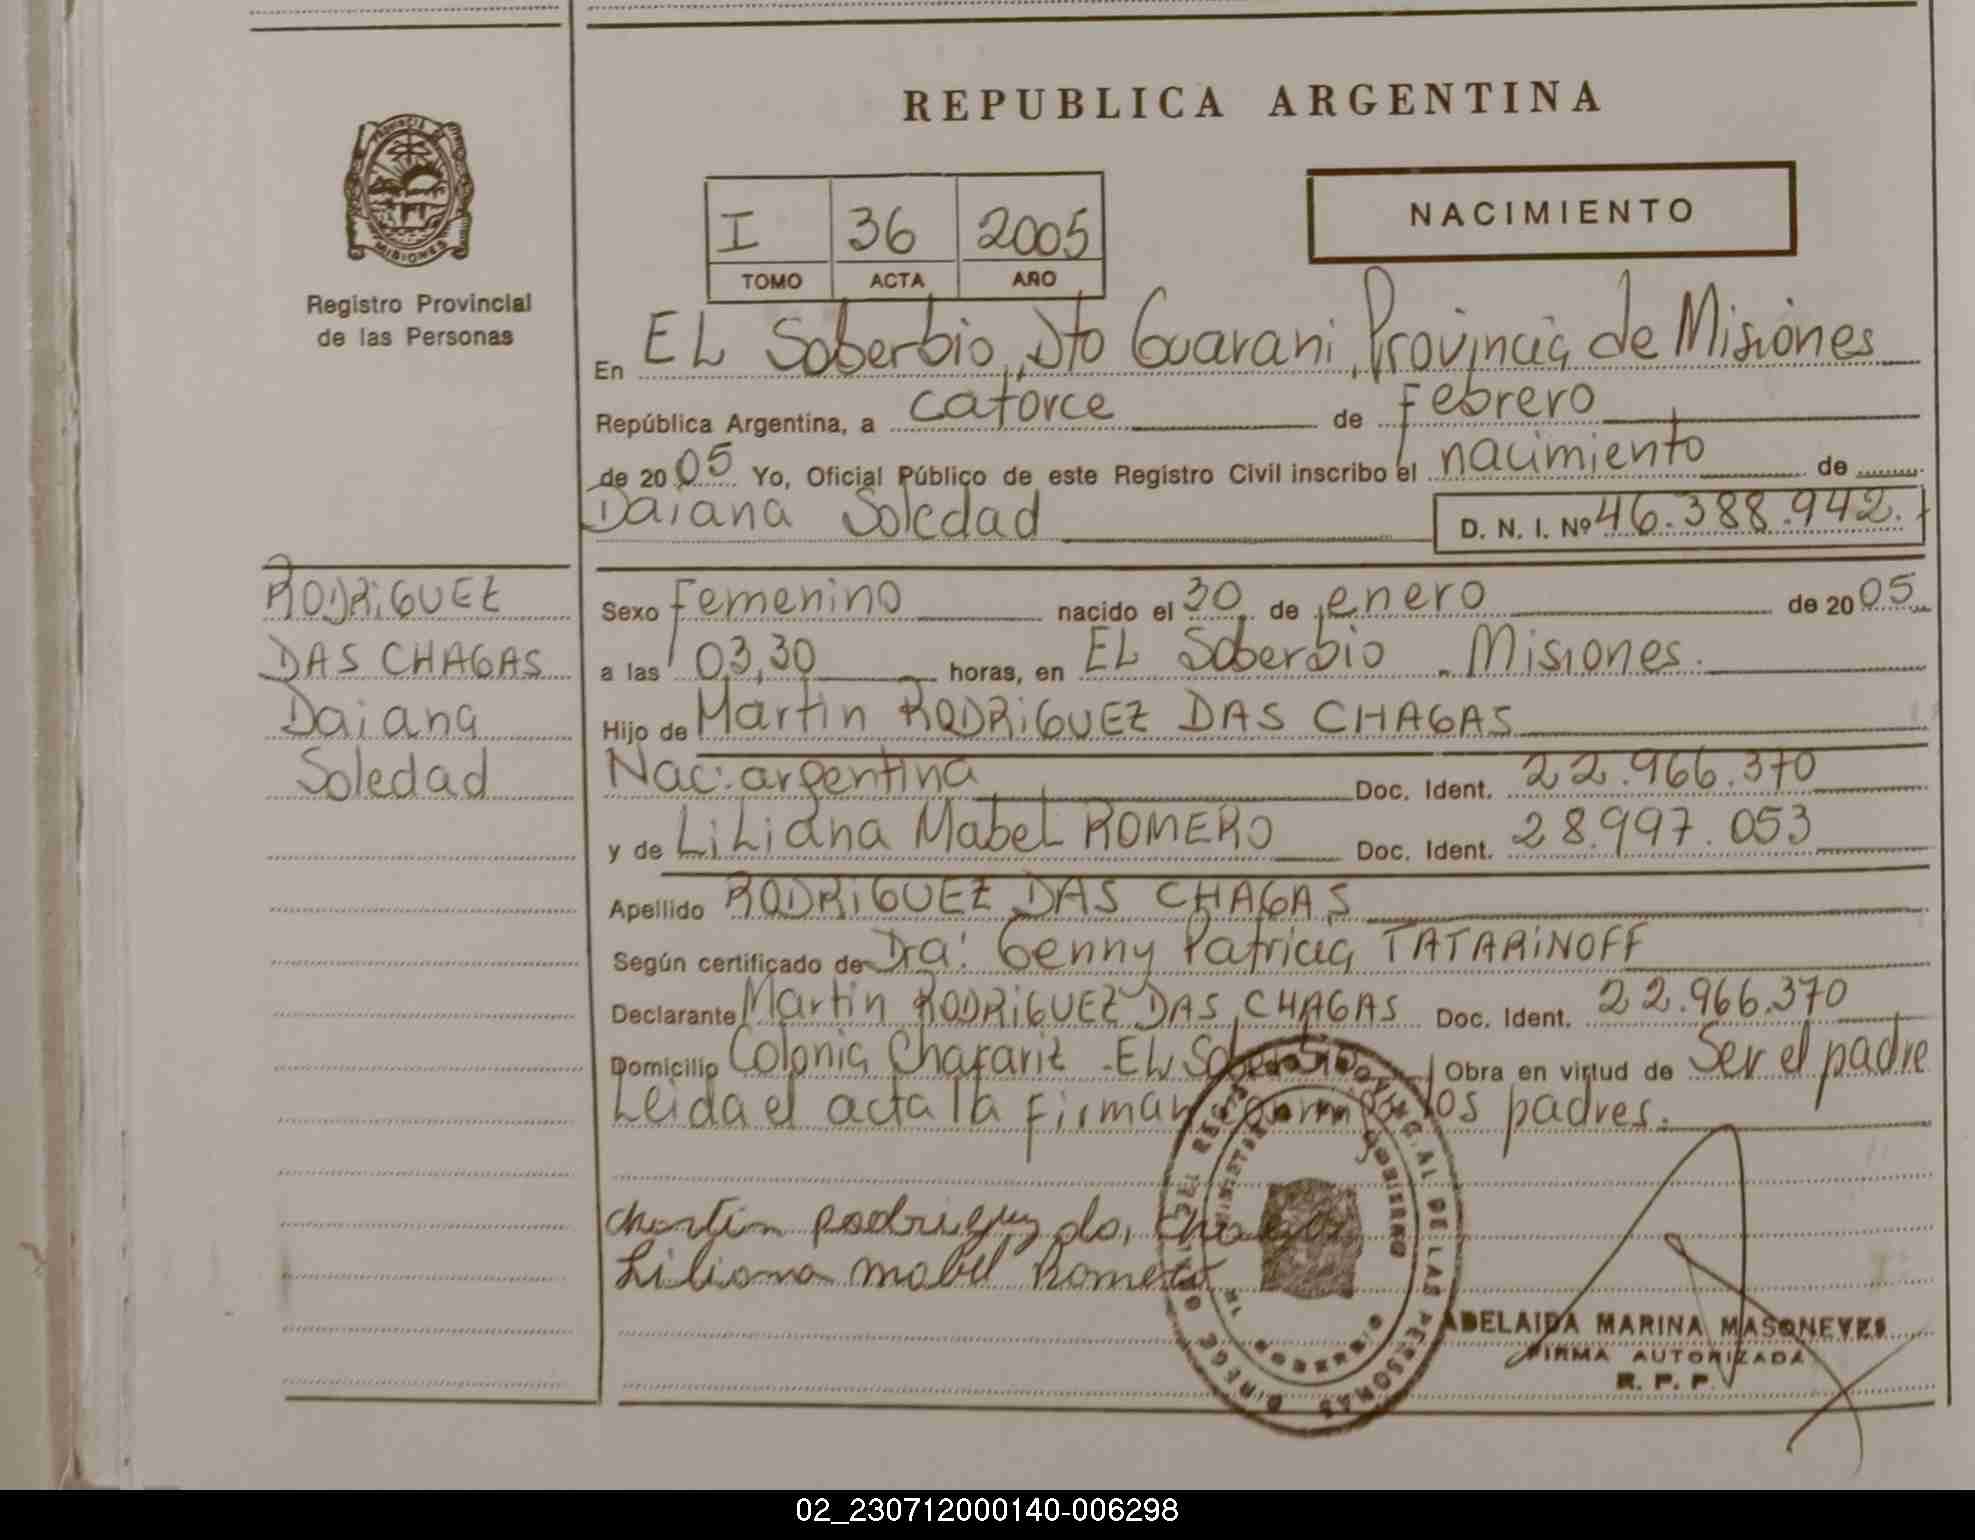 REPUBLICA ARGENTINA
PROVINCIA DE
MISIONES
Registro Provincial
de las Personas
NACIMIENTO
I 36 2005
TOMO ACTA AÑO
En EL Soberbio, Dto Guarani, Provincia de Misiones
República Argentina, a catorce de Febrero
de 2005 Yo, Oficial Público de este Registro Civil inscribo el nacimiento de
Daiana Soledad D. N. I. Nº 46.388.942.
RODRIGUEZ
DAS CHAGAS
Daiana
Soledad
Sexo Femenino nacido el 30 de enero de 2005
a las 03,30 horas, en EL Soberbio - Misiones.
Hijo de Martin RODRIGUEZ DAS CHAGAS
Nac: argentina Doc. Ident. 22.966.370
y de LiLiana Mabel ROMERO Doc. Ident. 28.997.053
Apellido RODRIGUEZ DAS CHAGAS
Según certificado de Dra: Genny Patricia TATARINOFF
Declarante Martin RODRIGUEZ DAS CHAGAS Doc. Ident. 22.966.370
Domicilio Colonia Chafariz - EL Soberbio Obra en virtud de Ser el padre
Leida el acta la firman los padres.
Martin Rodriguez das Chagas
Liliana mabel Romero
PROVINCIAL DE LAS PERSONAS
SOBERBIO
ADELAIDA MARINA MASONEVES
FIRMA AUTORIZADA
R. P. P.
02_230712000140-006298